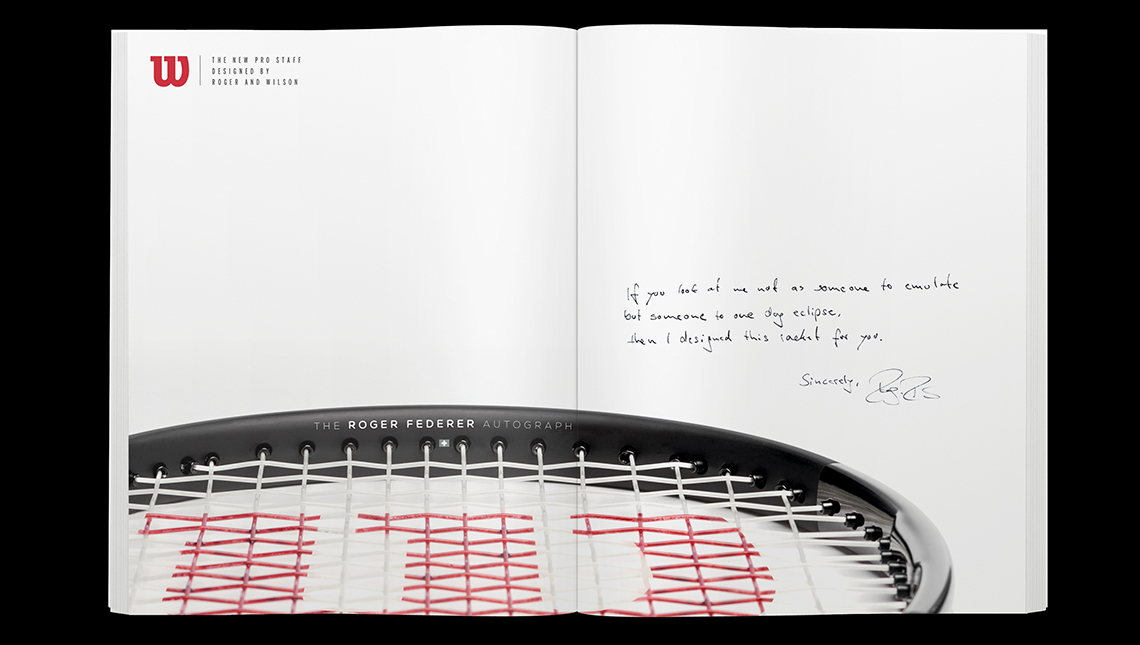 W
THE NEW PRO STAFF
DESIGNED BY
ROGER AND WILSON
If you look at me not as someone to emulate
but someone to one day eclipse,
then I designed this racket for you.
Sincerely,
THE ROGER FEDERER AUTOGRAPH